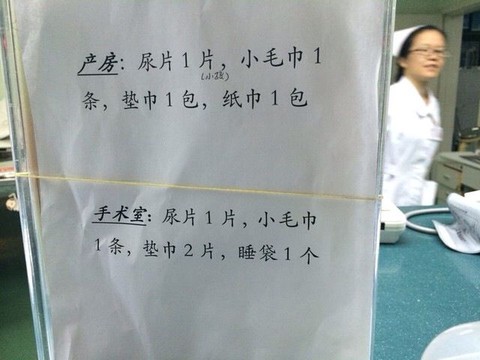 产房：尿片1片，小毛巾1
(小孩)
条，垫巾1包，纸巾1包
手术室：尿片1片，小毛巾
1条，垫巾2片，睡袋1个